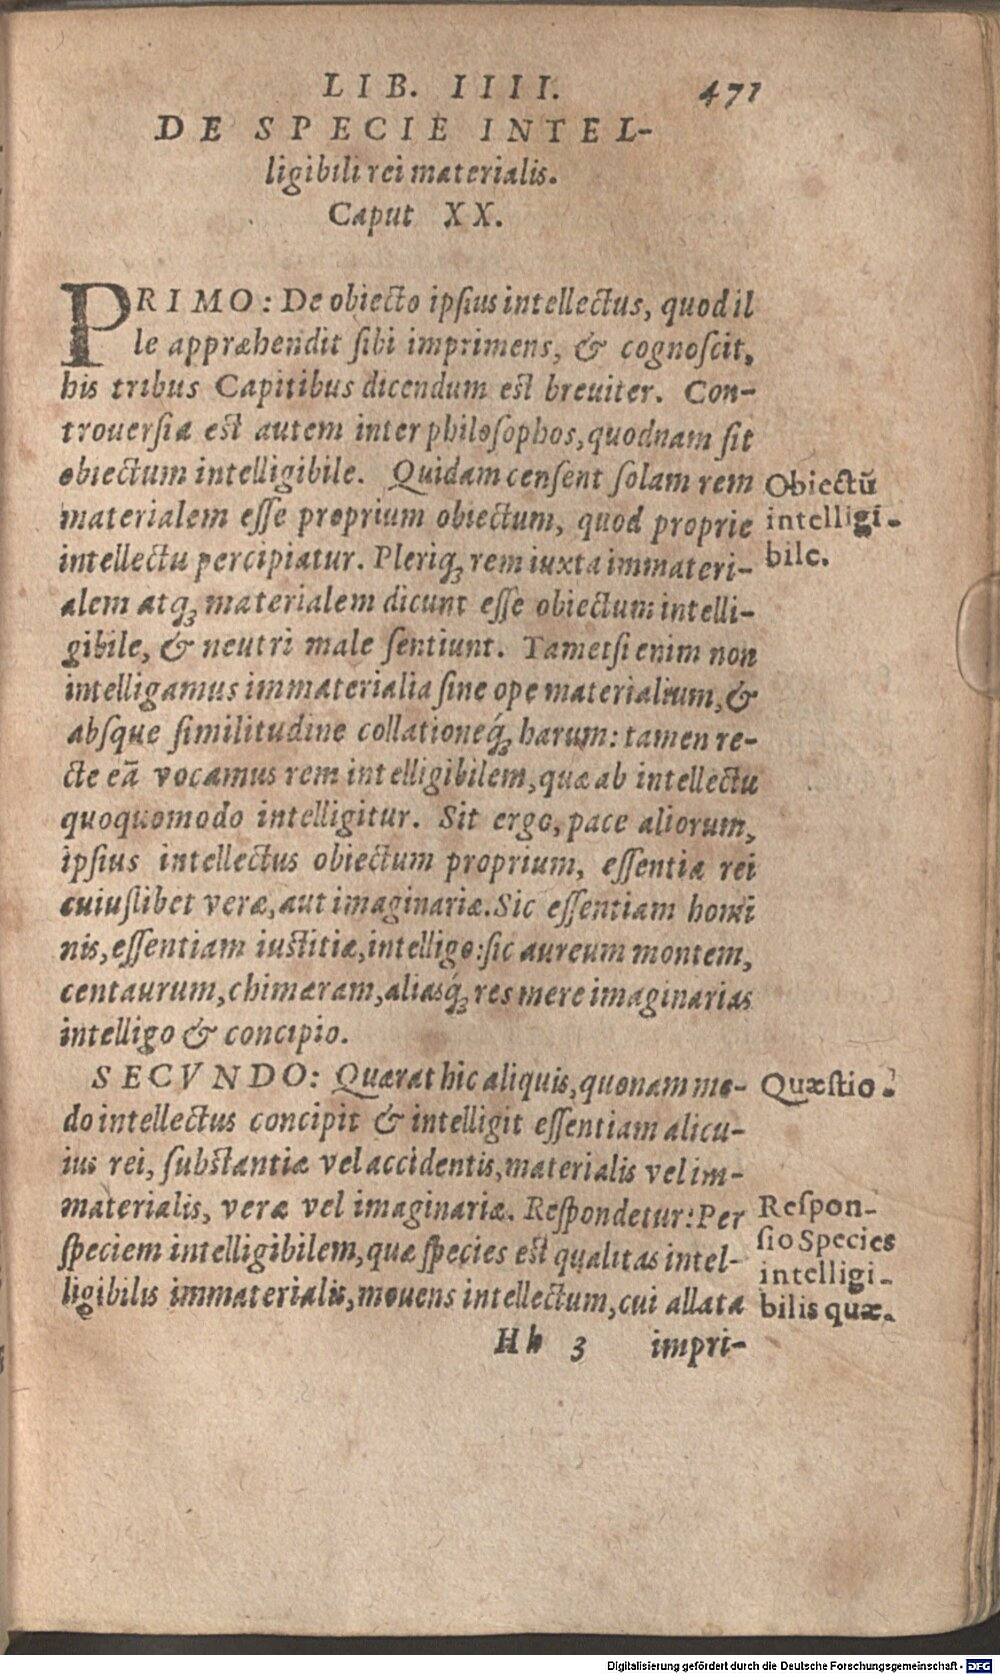 LIB. IIII. 471
DE SPECIE INTEL-
ligibili rei materialis.
Caput XX.
PRIMO: De obiecto ipsius intellectus, quod il
le appræhendit sibi imprimens, & cognoscit,
his tribus Capitibus dicendum est breuiter. Con-
trouersia est autem inter philosophos, quodnam sit
obiectum intelligibile. Quidam censent solam rem
materialem esse proprium obiectum, quod proprie
intellectu percipiatur. Pleriq; rem iuxta immateri-
alem atq; materialem dicunt esse obiectum intelli-
gibile, & neutri male sentiunt. Tametsi enim non
intelligamus immaterialia sine ope materialium, &
absque similitudine collationeq́; harum: tamen re-
cte eā vocamus rem intelligibilem, quæ ab intellectu
quoquomodo intelligitur. Sit ergo, pace aliorum,
ipsius intellectus obiectum proprium, essentia rei
cuiuslibet veræ, aut imaginariæ. Sic essentiam homi
nis, essentiam iustitiæ, intelligo: sic aureum montem,
centaurum, chimæram, aliasq́; res mere imaginarias
intelligo & concipio.
SECVNDO: Quærat hic aliquis, quonam mo-
do intellectus concipit & intelligit essentiam alicu-
ius rei, substantiæ vel accidentis, materialis vel im-
materialis, veræ vel imaginariæ. Respondetur: Per
speciem intelligibilem, quæ species est qualitas intel-
ligibilis immaterialis, mouens intellectum, cui allata
Hh 3 impri-
Obiectū
intelligi-
bile.
Quæstio.
Respon-
sio Species
intelligi-
bilis quæ.
Digitalisierung gefördert durch die Deutsche Forschungsgemeinschaft - DFG